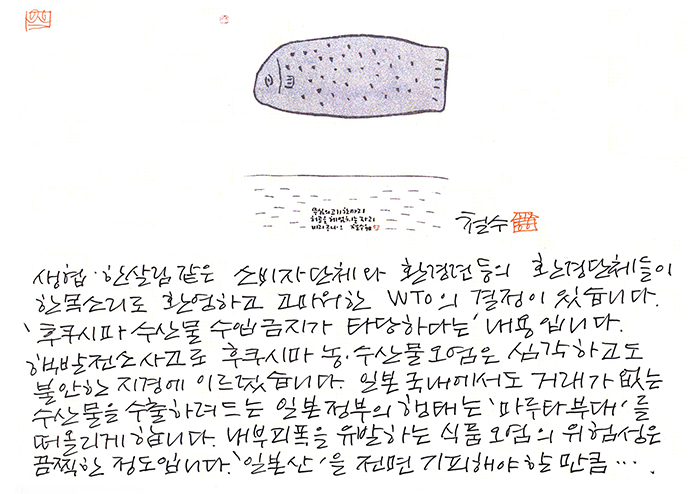 허공을 헤엄치는 자리
철수
생협·한살림 같은 소비자단체와 환경련 등의 환경단체들이
한목소리로 환영하고 고마워한 WTO의 결정이 있습니다.
'후쿠시마 수산물 수입금지가 타당하다는' 내용입니다.
핵발전소사고로 후쿠시마 농·수산물오염은 심각하고도
불안한 지경에 이르렀습니다. 일본국내에서도 거래가 없는
수산물을 수출하려드는 일본정부의 행태는 '마루타부대'를
떠올리게 합니다. 내부피폭을 유발하는 식품오염의 위험성은
끔찍한 정도입니다. '일본산'을 전면 기피해야 할 만큼….